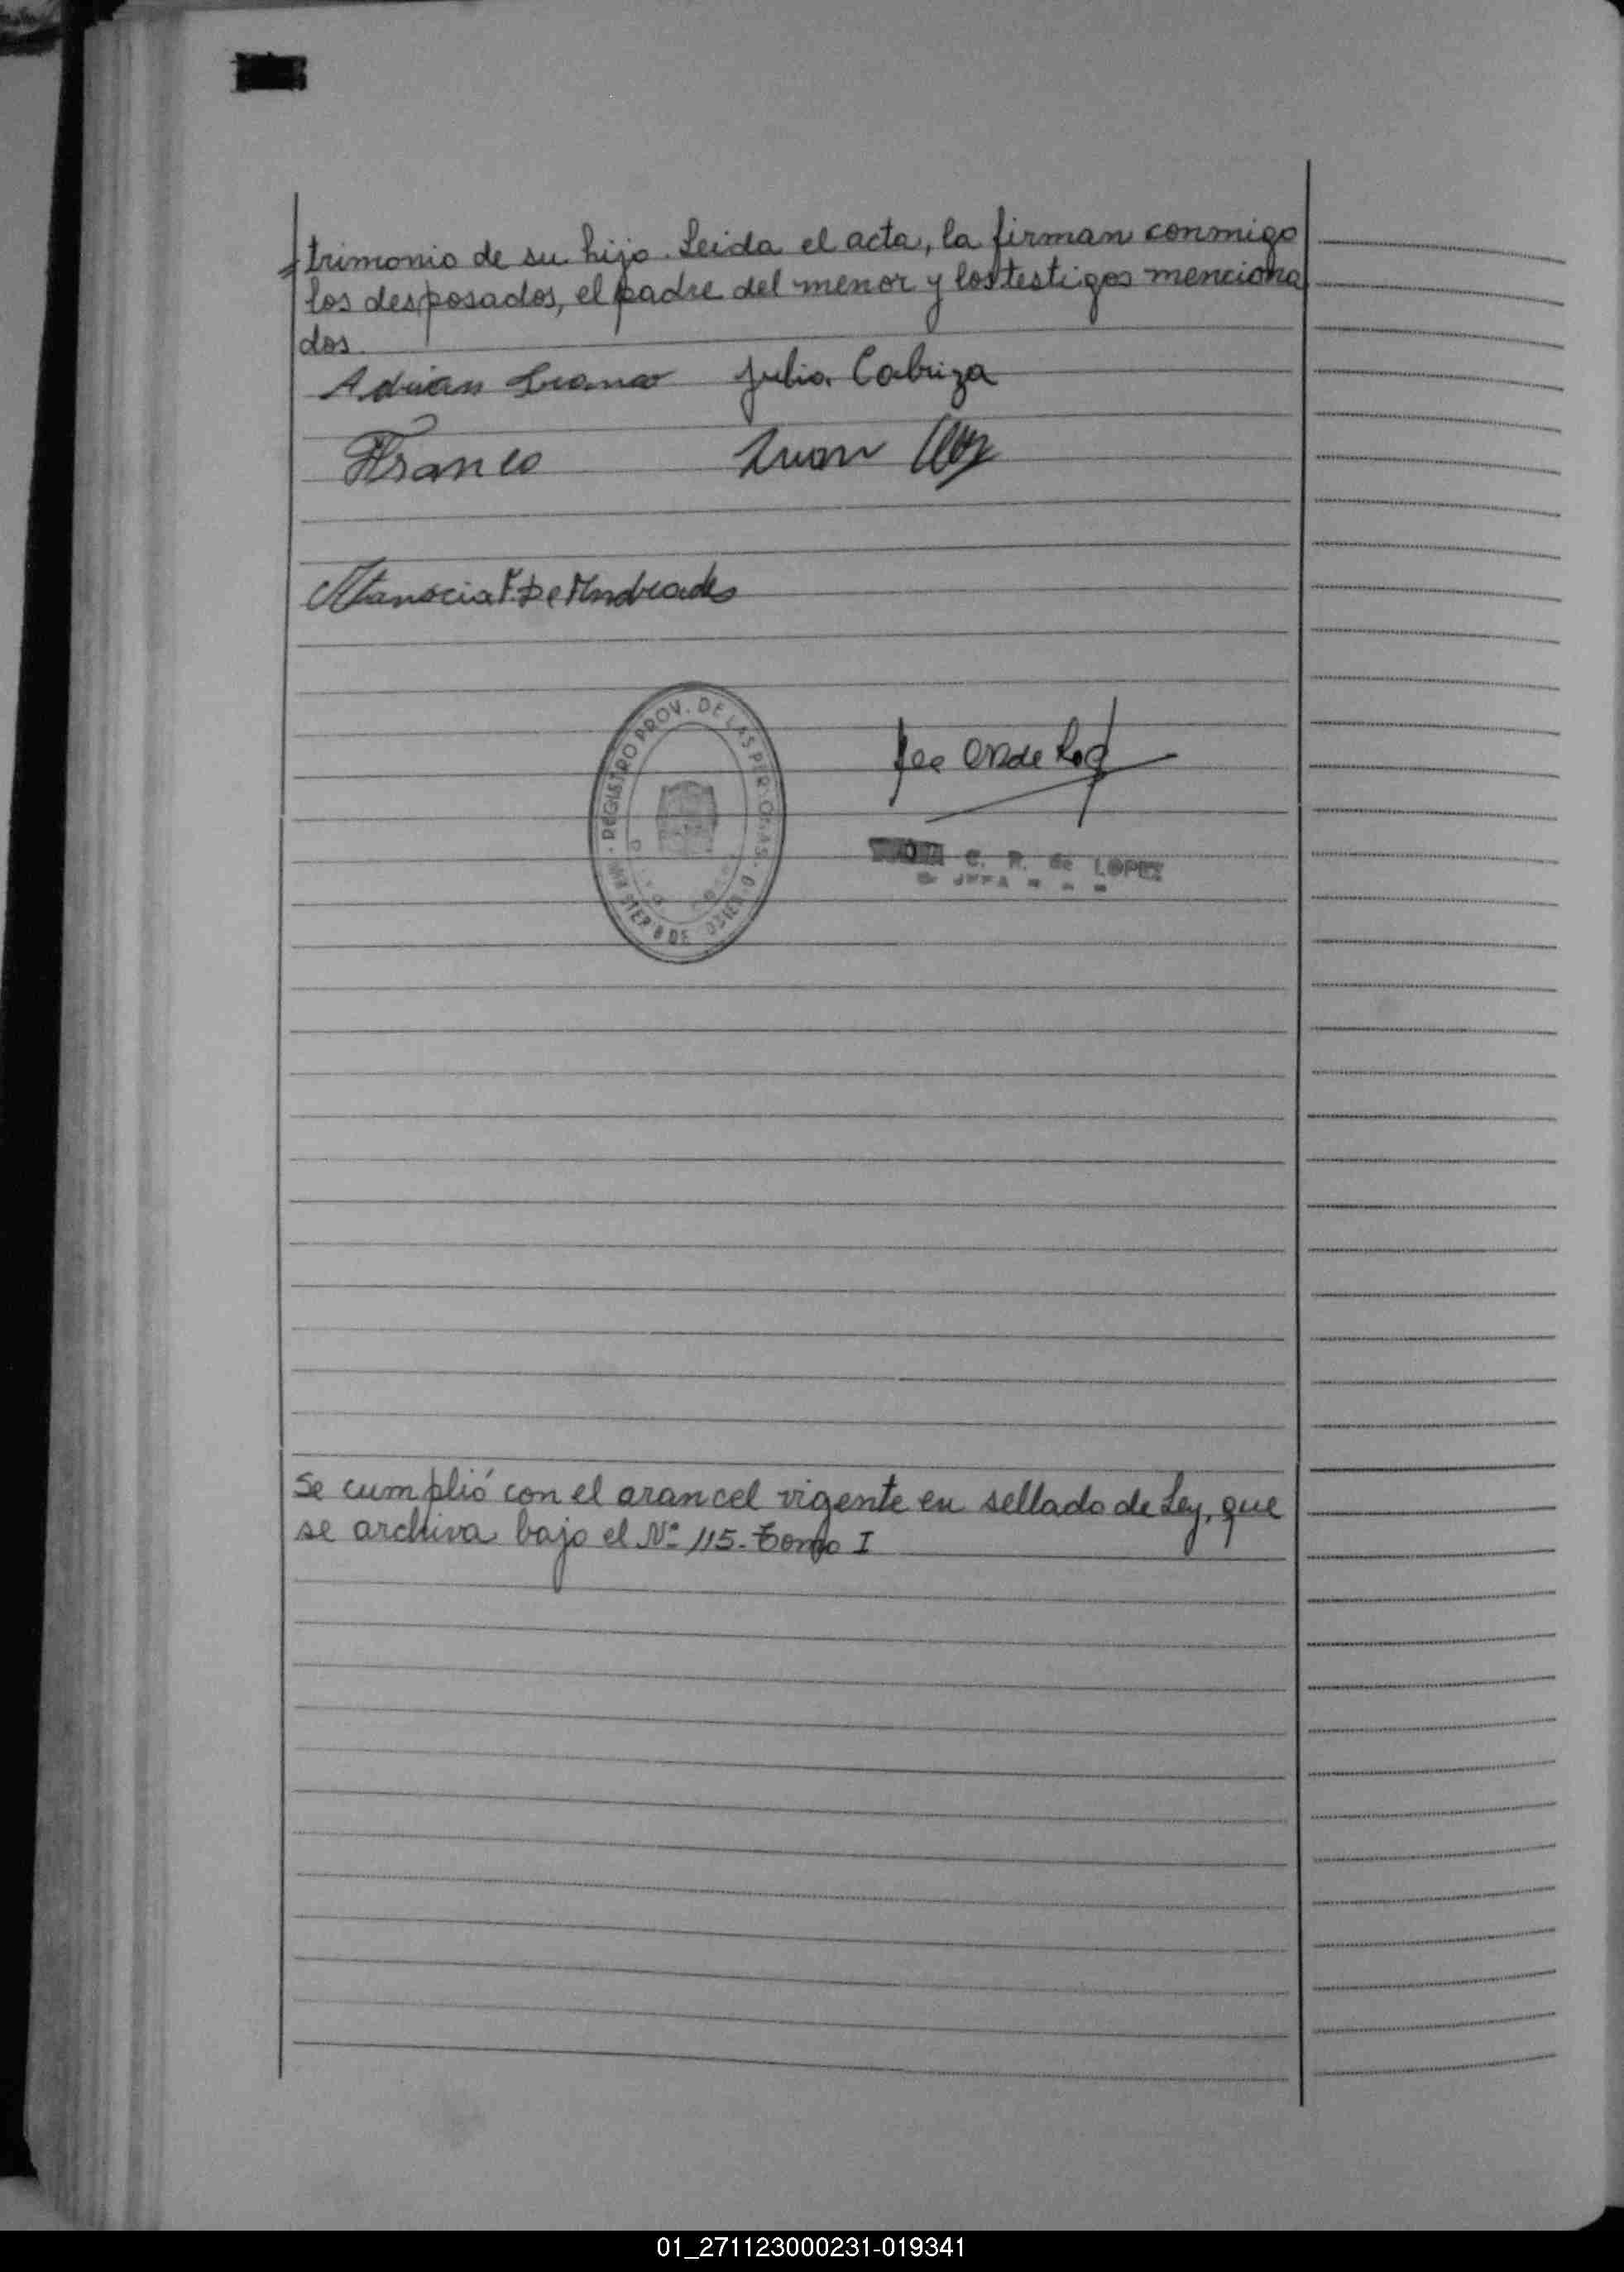 =trimonio de su hijo. Leida el acta, la firman conmigo
los desposados, el padre del menor y los testigos menciona
dos.
Adrian Franco Julia Cabriza
Franco Juan
De Andrades
REGISTRO PROV. DE LAS PERSONAS
C. R. de LOPEZ
Se cumplió con el arancel vigente en sellado de Ley, que
se archiva bajo el Nº 115. Tomo I
01_271123000231-019341